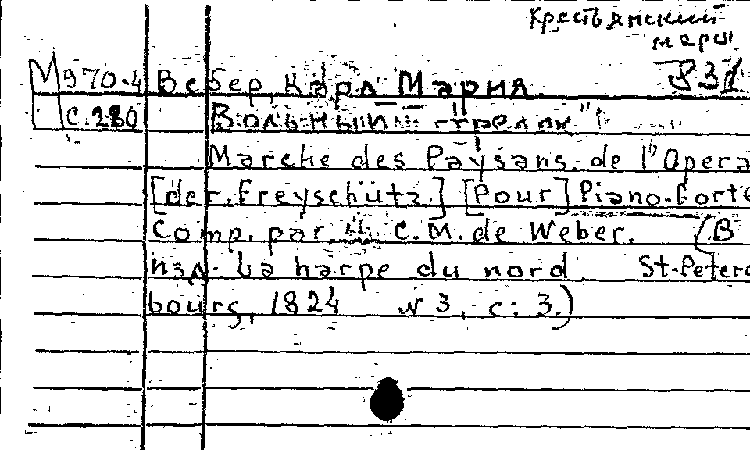 Крестьянский
марш
М970.4 Вебер, Карл Мария.
с.280 "Вольный стрелок"
Marche des Paÿsans de l'Opera
[der Freyschütz.] [Pour] Piano-Forte
Comp. par C.M. de Weber. (В
изд. La harpe du nord. St-Peters
bourg, 1824 № 3, с. 3.)